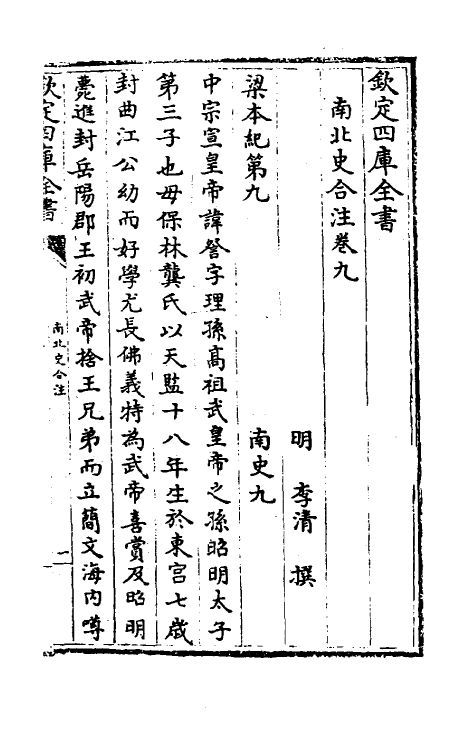 欽定四庫全書
南北史合注卷九
明 李清 撰
梁本紀第九 南史九
中宗宣皇帝諱詧字理孫髙祖武皇帝之孫昭明太子
第三子也母保林龔氏以天監十八年生於東宫七歳
封曲江公幼而好學尤長佛義特為武帝喜賞及昭明
薨進封岳陽郡王初武帝捨王兄弟而立簡文海内噂
欽定四庫全書
南北史合注
一